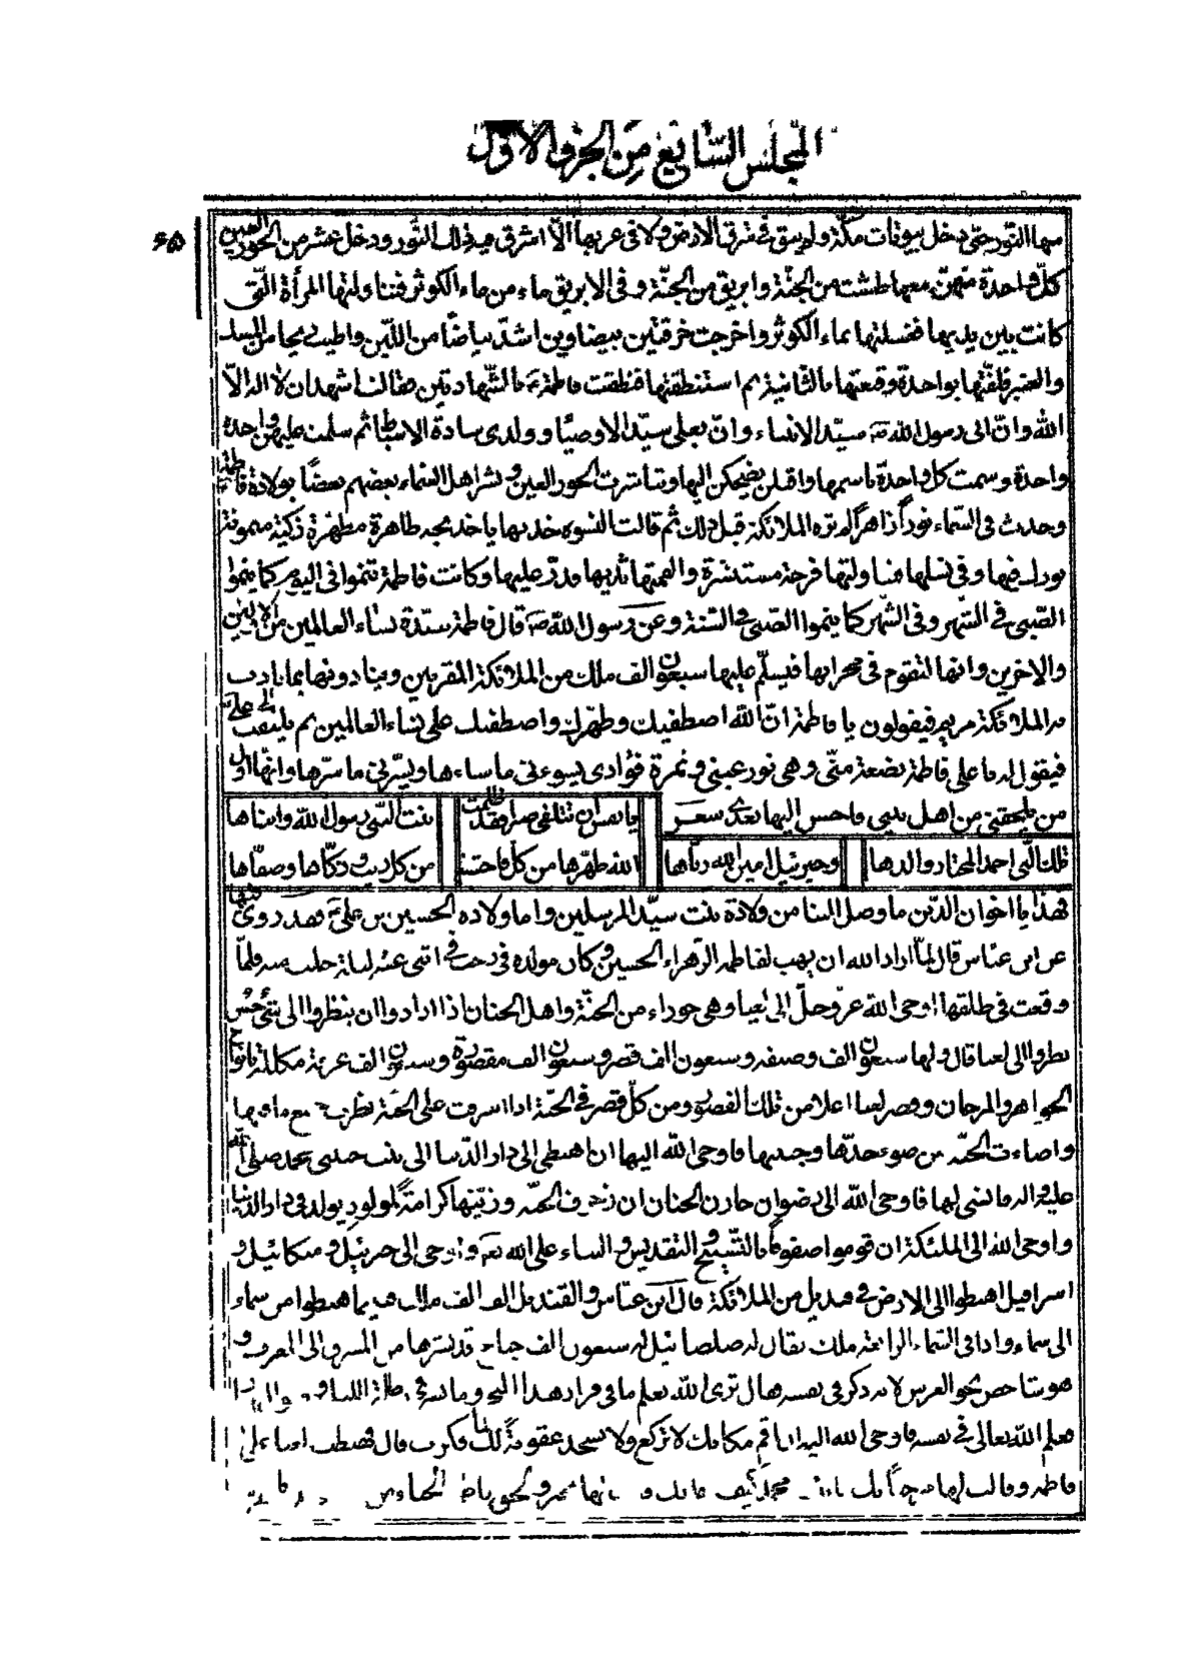 المجلس السابع من الجزء الاول
۶۵
منها النور حتى دخل بيوتات مكة ولم يبق فى شرق الارض ولا فى غربها الا اشرق فيه ذلك النور ودخل عشر من الحور العين
كل واحدة منهن معها طشت من الجنة وابريق من الجنة وفى الابريق ماء من ماء الكوثر فتناولتها المرأة التى
كانت بين يديها فغسلتها بماء الكوثر واخرجت خرقتين بيضاوين اشد بياضا من اللبن واطيب ريحا من المسك
والعنبر فلفتها بواحدة وقنعتها بالثانية ثم استنطقتها فنطقت فاطمة بالشهادتين فقالت اشهد ان لا اله الا
الله وان ابى رسول الله سيد الانبياء وان بعلى سيد الاوصياء وولدى سادة الاسباط ثم سلمت عليهن واحدة
واحدة وسمت كل واحدة باسمها واقبلن يضحكن اليها وتباشرت الحور العين وبشر اهل السماء بعضهم بعضا بولادة فاطمة
وحدث فى السماء نوراً زاهراً لم تره الملائكة قبل ذلك ثم قالت النسوه خذيها يا خديجه طاهرة مطهرة زكية ميمونة
بورك فيها وفى نسلها فتناولتها فرحة مستبشرة والقمتها ثديها فدر عليها وكانت فاطمة تنموا فى اليوم كما ينموا
الصبى فى الشهر وفى الشهر كما ينموا الصبى فى السنة وعن رسول الله قال فاطمة سيدة نساء العالمين من الاولين
والاخرين وانها لتقوم فى محرابها فيسلم عليها سبعون الف ملك من الملائكة المقربين وينادونها بما نادت
به الملائكة مريم فيقولون يا فاطمة ان الله اصطفيك وطهرك واصطفيك على نساء العالمين ثم يلتفت الى على
فيقول له يا على فاطمة بضعة منى وهى نور عينى وثمرة فؤادى يسوءنى ما ساءها ويسرنى ما سرها وانها اول
من يلحقنى من اهل بيتى فاحسن اليها بعدى شعر يا نفس ان تتلفى صبرا فقد ظلمت بنت النبى رسول الله وابناها
تلك التى احمد المختار والدها وجبرئيل امين الله رباها الله طهرها من كل فاحشة من كل ريب وزكاها وصفاها
فهذا يا اخوان الدين ما وصل الينا من ولادة بنت سيد المرسلين واما ولاده الحسين بن على فقد روى فيها
عن ابن عباس قال لما اراد الله ان يهب لفاطمه الزهراء الحسين وكان مولده فى رجب فى اثنى عشر ليلة خلت منه فلما
وقعت فى طلقها اوحى الله عز وجل الى لعيا وهى حوراء من الجنة واهل الجنان اذا ارادوا ان ينظروا الى شئ حسن
نظروا الى لعيا قال ولها سبعون الف وصيفه وسبعون الف قصر وسبعون الف مقصورة وسبعون الف غرفة مكللة بانواع
الجواهر والمرجان وقصر لعيا اعلا من تلك القصور ومن كل قصر فى الجنة اذا اشرفت على الجنة نظرت جميع ما فيها
واضاءت الجنة من ضوء خدها وجبينها فاوحى الله اليها ان اهبطى الى دار الدنيا الى بنت حبيبى محمد صلى الله
عليه واله فانسى لها فاوحى الله الى رضوان خازن الجنان ان زخرف الجنه وزينها كرامة لمولود يولد فى دار الدنيا
واوحى الله الى الملئكة ان قوموا صفوفا بالتسبيح والتقديس والثناء على الله تعالى واوحى الى جبرئيل وميكائيل و
اسرافيل اهبطوا الى الارض فى قنديل من الملائكة قال ابن عباس والقنديل الف الف ملك فبينما هبطوا من سماء
الى سماء واذا فى السماء الرابعة ملك يقال له صلصائيل له سبعون الف جناح قد نشرها من المشرق الى المغرب و
هو شاخص نحو العرش لانه ذكر فى نفسه هال ترى الله يعلم ما فى قرار هذا البحر وما يسير فى ظلمة الليل
فعلم الله تعالى فى نفسه فاوحى الله اليه ان اقم مكانك لا تركع ولا تسجد عقوبة لك لما فكرت قال فهبطت لعيا على
فاطمه وقالت لها مرحبا بك يا بنت محمد كيف حالك